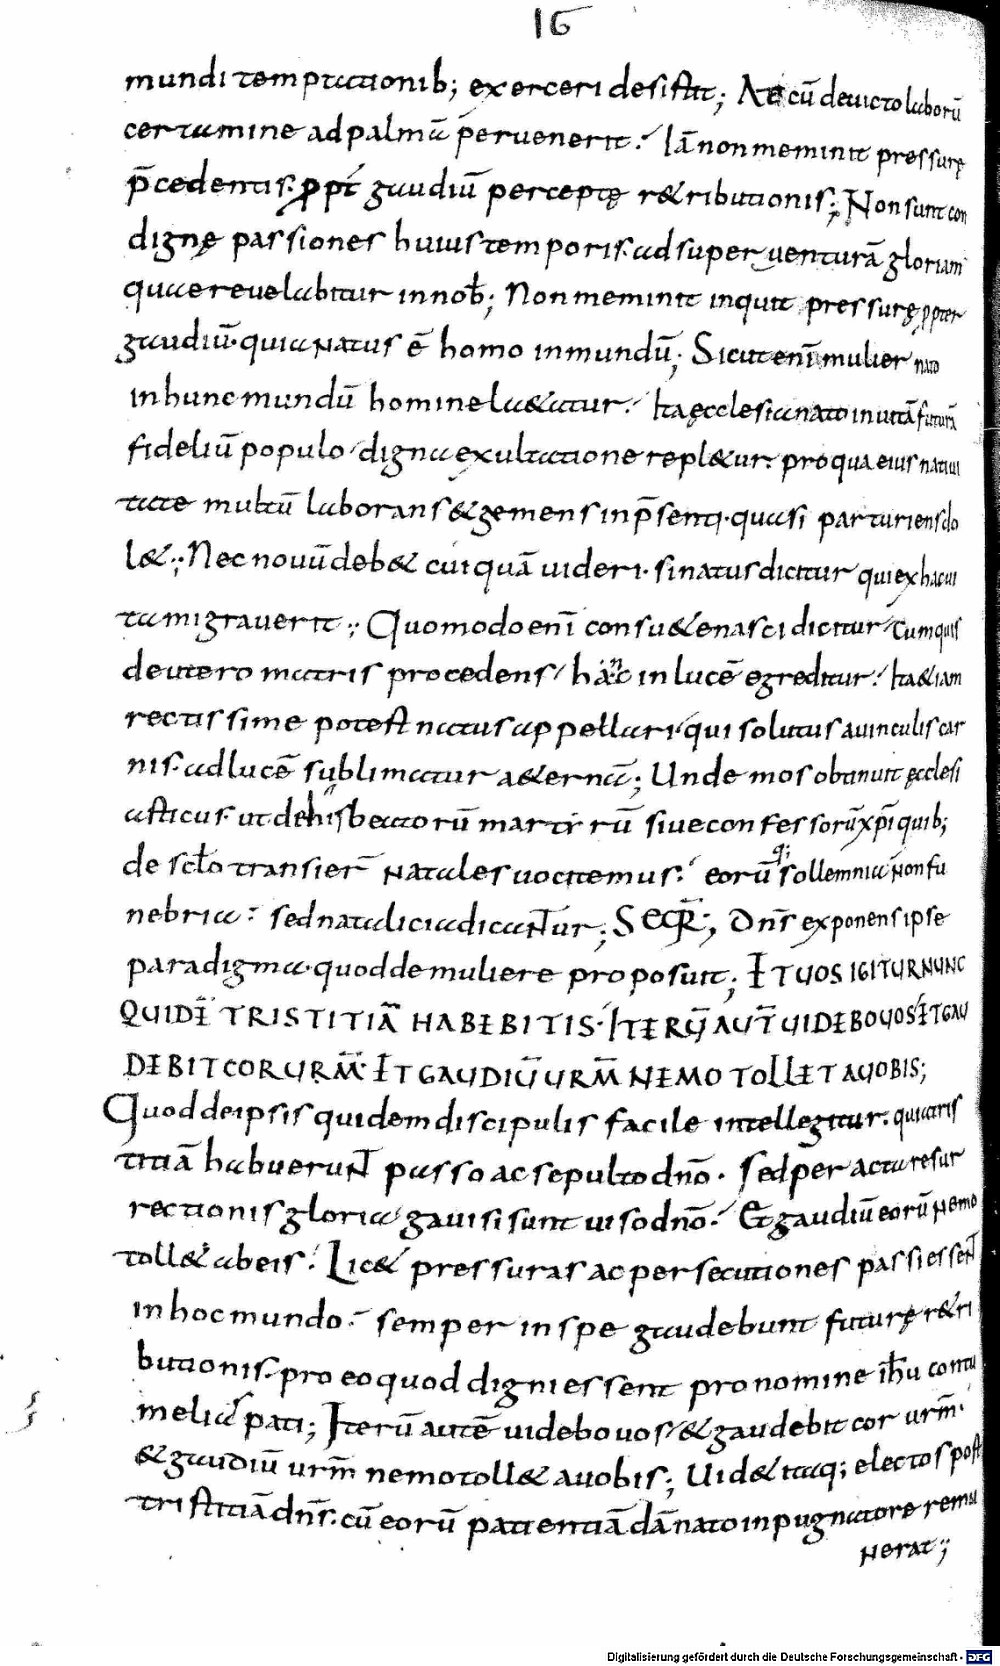 16
mundi temptationib; exerceri desistit; At cū deuicto laborū
certamine ad palmā peruenerit. Iā non meminit pressurę
p̄cedentis. ꝓpt̄ gaudiū perceptę r&ributionis; Non sunt con
dignę passiones huius temporis. ad superuenturā gloriam
quae reuelabitur in nob̄; Non meminit inquit pressurę ꝓpter
gaudiū. quia natus ē homo in mundū; Sicut enī mulier nato
in hunc mundū homine la&atur. Ita ęcclesia nato in uitā futurā
fideliū populo digna exultatione repl&ur. pro qua eius natiui
tate multū laborans & gemens in p̄senti. quasi parturiens do
l&; Nec nouū deb& cuiquā uideri. si natus dicitur qui ex hac ui
ta migrauerit; Quomodo enī consu&e nasci dicitur cum quis
de utero matris procedens hanc in lucē egreditur. Ita &iam
rectissime potest natus appellari. qui solutus a uinculis car
nis. ad lucē sublimatur a&ernā; Unde mos obtinuit ęcclesi
asticus. ut dehis beatorū martirū siue confessorū xp̄i quib;
de scl̄o transier̄ natales uocitemus. eorūq; sollemnia non fu
nebria. sed natalicia dicantur; SEQR̄; Dn̄s exponens ipse
paradigma. quod de muliere proposuit; ET UOS IGITUR NUNC
QUIDĒ TRISTITIĀ HABEBITIS. ITERŪ AUT̄ UIDEBO UOS ET GAU
DEBIT COR UR̄M ET GAUDIŪ UR̄M NEMO TOLLET A UOBIS;
Quod de ipsis quidem discipulis facile intellegitur. quia tris
titiā habuerunt passo ac sepulto dn̄o. sed per acta resur
rectionis gloria gauisi sunt uiso dn̄o. Et gaudiū eorū nemo
toll& ab eis. Lic& pressuras ac persecutiones passi essent
in hoc mundo. semper in spe gaudebunt futurę r&ri
butionis. pro eo quod digni essent pro nomine ih̄u contu
melias pati; Iterū autē uidebo uos & gaudebit cor ur̄m.
& gaudiū ur̄m nemo toll& a uobis; Uid& itaq; electos post
tristitiā dn̄s. cū eorū patientiā dānato inpugnatore remu
nerat;
Digitalisierung gefördert durch die Deutsche Forschungsgemeinschaft - DFG